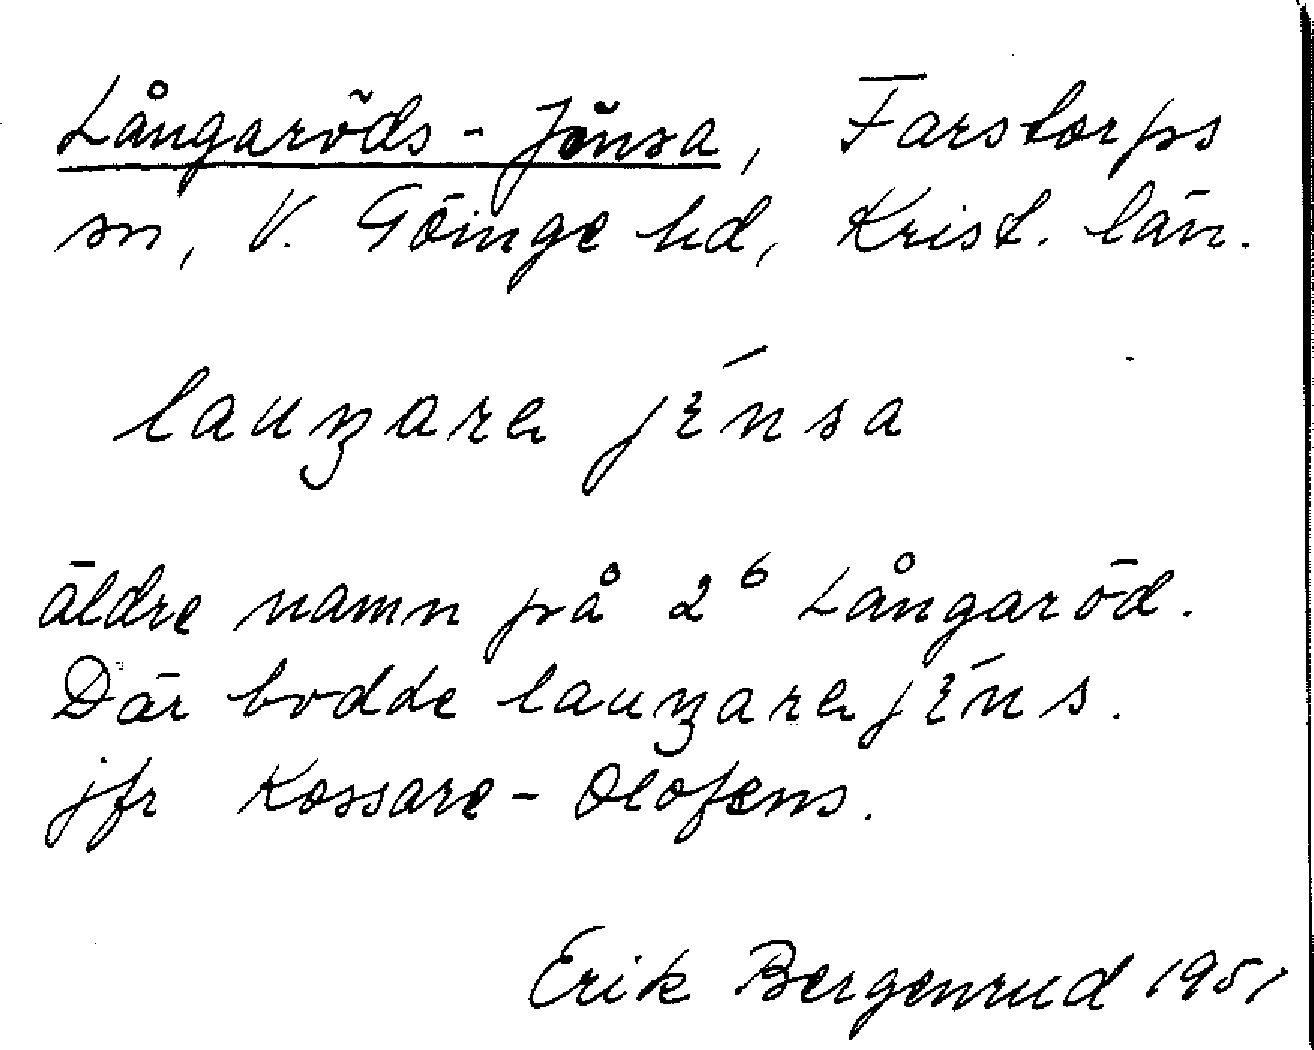 Långaröds-Jönsa, Farstorps
sn, V. Göinge hd, Krist. län.
lauŋara jɛ́nsa
äldre namn på 2⁶ Långaröd.
Där bodde lauŋara jɛ́ns.
jfr Kossare-Olofens.
Erik Bergenrud 1951